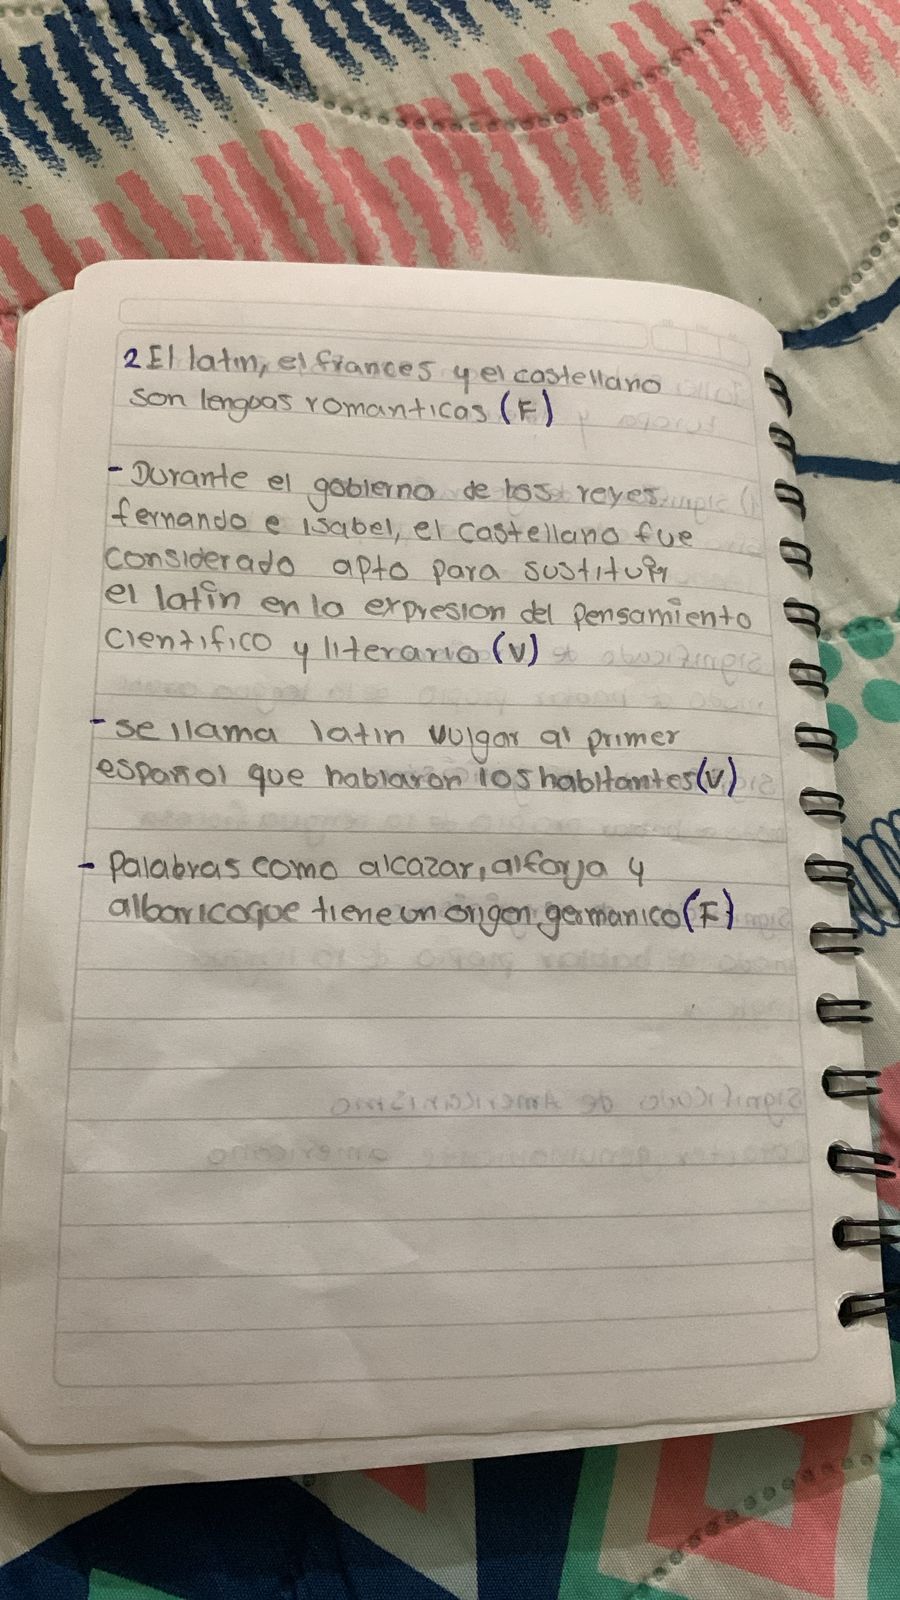 2 El latin, el frances y el castellano
son lenguas romanticas (F)
- Durante el gobierno de los reyes
fernando e isabel, el castellano fue
considerado apto para sustituir
el latin en la expresion del pensamiento
cientifico y literario (V)
- se llama latin vulgar al primer
español que hablaron los habitantes (V)
- Palabras como alcazar, alforja y
albaricoque tiene un origen germanico (F)